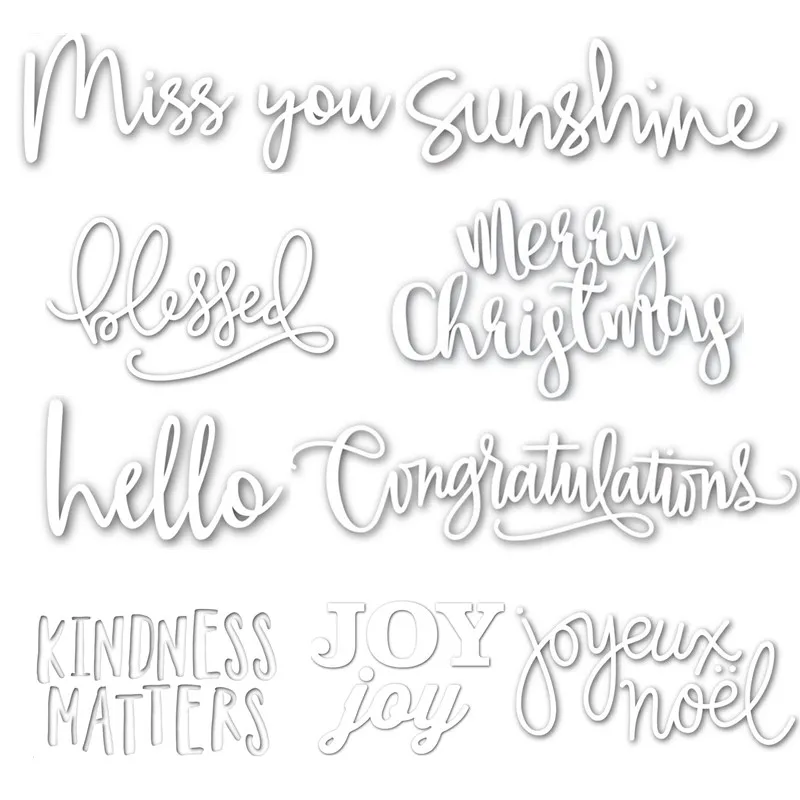 Miss you sunshine
blessed
Merry
Christmas
hello
Congratulations
KINDNESS
MATTERS
JOY
joy
joyeux
noël